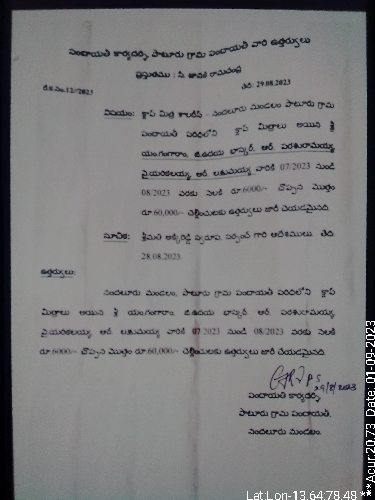 పంచాయతీ కార్యదర్శి, పాటూరు గ్రామ పంచాయతీ వారి ఉత్తర్వులు
ప్రస్తుతము : సి. జానకి రామచంద్ర
రీ.క.నం.12/2023
తేది: 29.08.2023
విషయం: క్లాప్ మిత్ర శాలరీస్ - నందలూరు మండలం పాటూరు గ్రామ
పంచాయతి పరిధిలోని క్లాప్ మిత్రాలు అయిన శ్రీ
యం.గంగారాం, జి.ఉదయ భాస్కర్, ఆర్. పరశురామయ్య,
వై.యరికలయ్య, ఆర్. లక్షుమయ్య వారికి 07/2023 నుండి
08/2023 వరకు నెలకి రూ.6000/- చొప్పున మొత్తం
రూ.60,000/- చెల్లించుటకు ఉత్తర్వులు జారీ చేయడమైనది.
సూచిక: శ్రీమతి అక్కిరెడ్డి స్వరూప, సర్పంచ్ గారి ఆదేశములు తేది
28.08.2023.
ఉత్తర్వులు:
నందలూరు మండలం, పాటూరు గ్రామ పంచాయతి పరిధిలోని క్లాప్
మిత్రాలు అయిన శ్రీ యం.గంగారాం, జి.ఉదయ భాస్కర్, ఆర్. పరశురామయ్య,
వై.యరికలయ్య, ఆర్. లక్షుమయ్య వారికి 07.2023 నుండి 08/2023 వరకు నెలకి
రూ.6000/- చొప్పున మొత్తం రూ.60,000/- చెల్లించుటకు ఉత్తర్వులు జారీ చేయడమైనది.
29/8/2023
పంచాయతి కార్యదర్శి,
పాటూరు గ్రామ పంచాయతి,
నందలూరు మండలం.
Lat:Lon-13.64:78.48
***Acur:20.73 Date: 01-09-2023